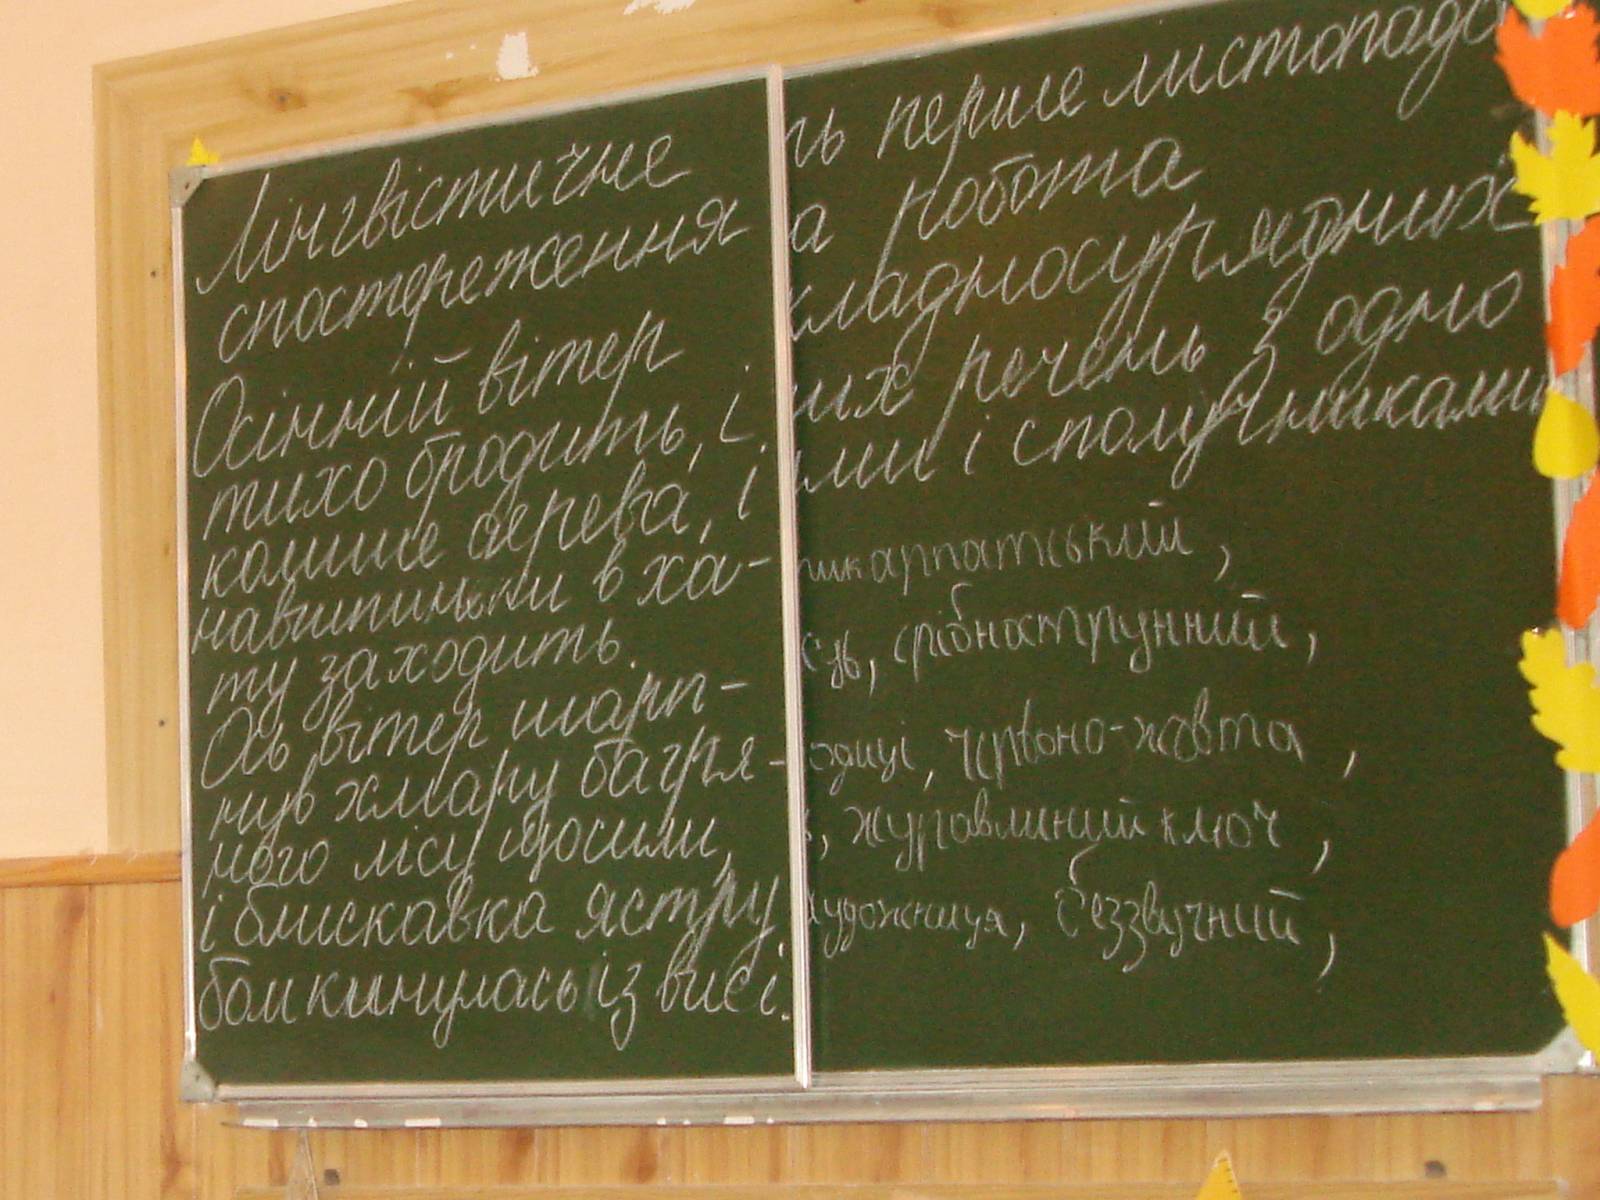 Лінгвістичне
спостереження
Осінній вітер
тихо бродить, і
колише дерева, і
навшпиньки в ха-
ту заходить.
Ось вітер шарп-
нув хмару багря-
ного лісу щосили,
і блискавка ястру
бом кинулась із висі.
ть перше листопада
а робота
кладносурядних
них речень з одно
ми і сполучниками
икарпатський,
єць, срібнострунний,
одиці, червоно-жовта,
, журавлиний ключ,
художниця, беззвучний,